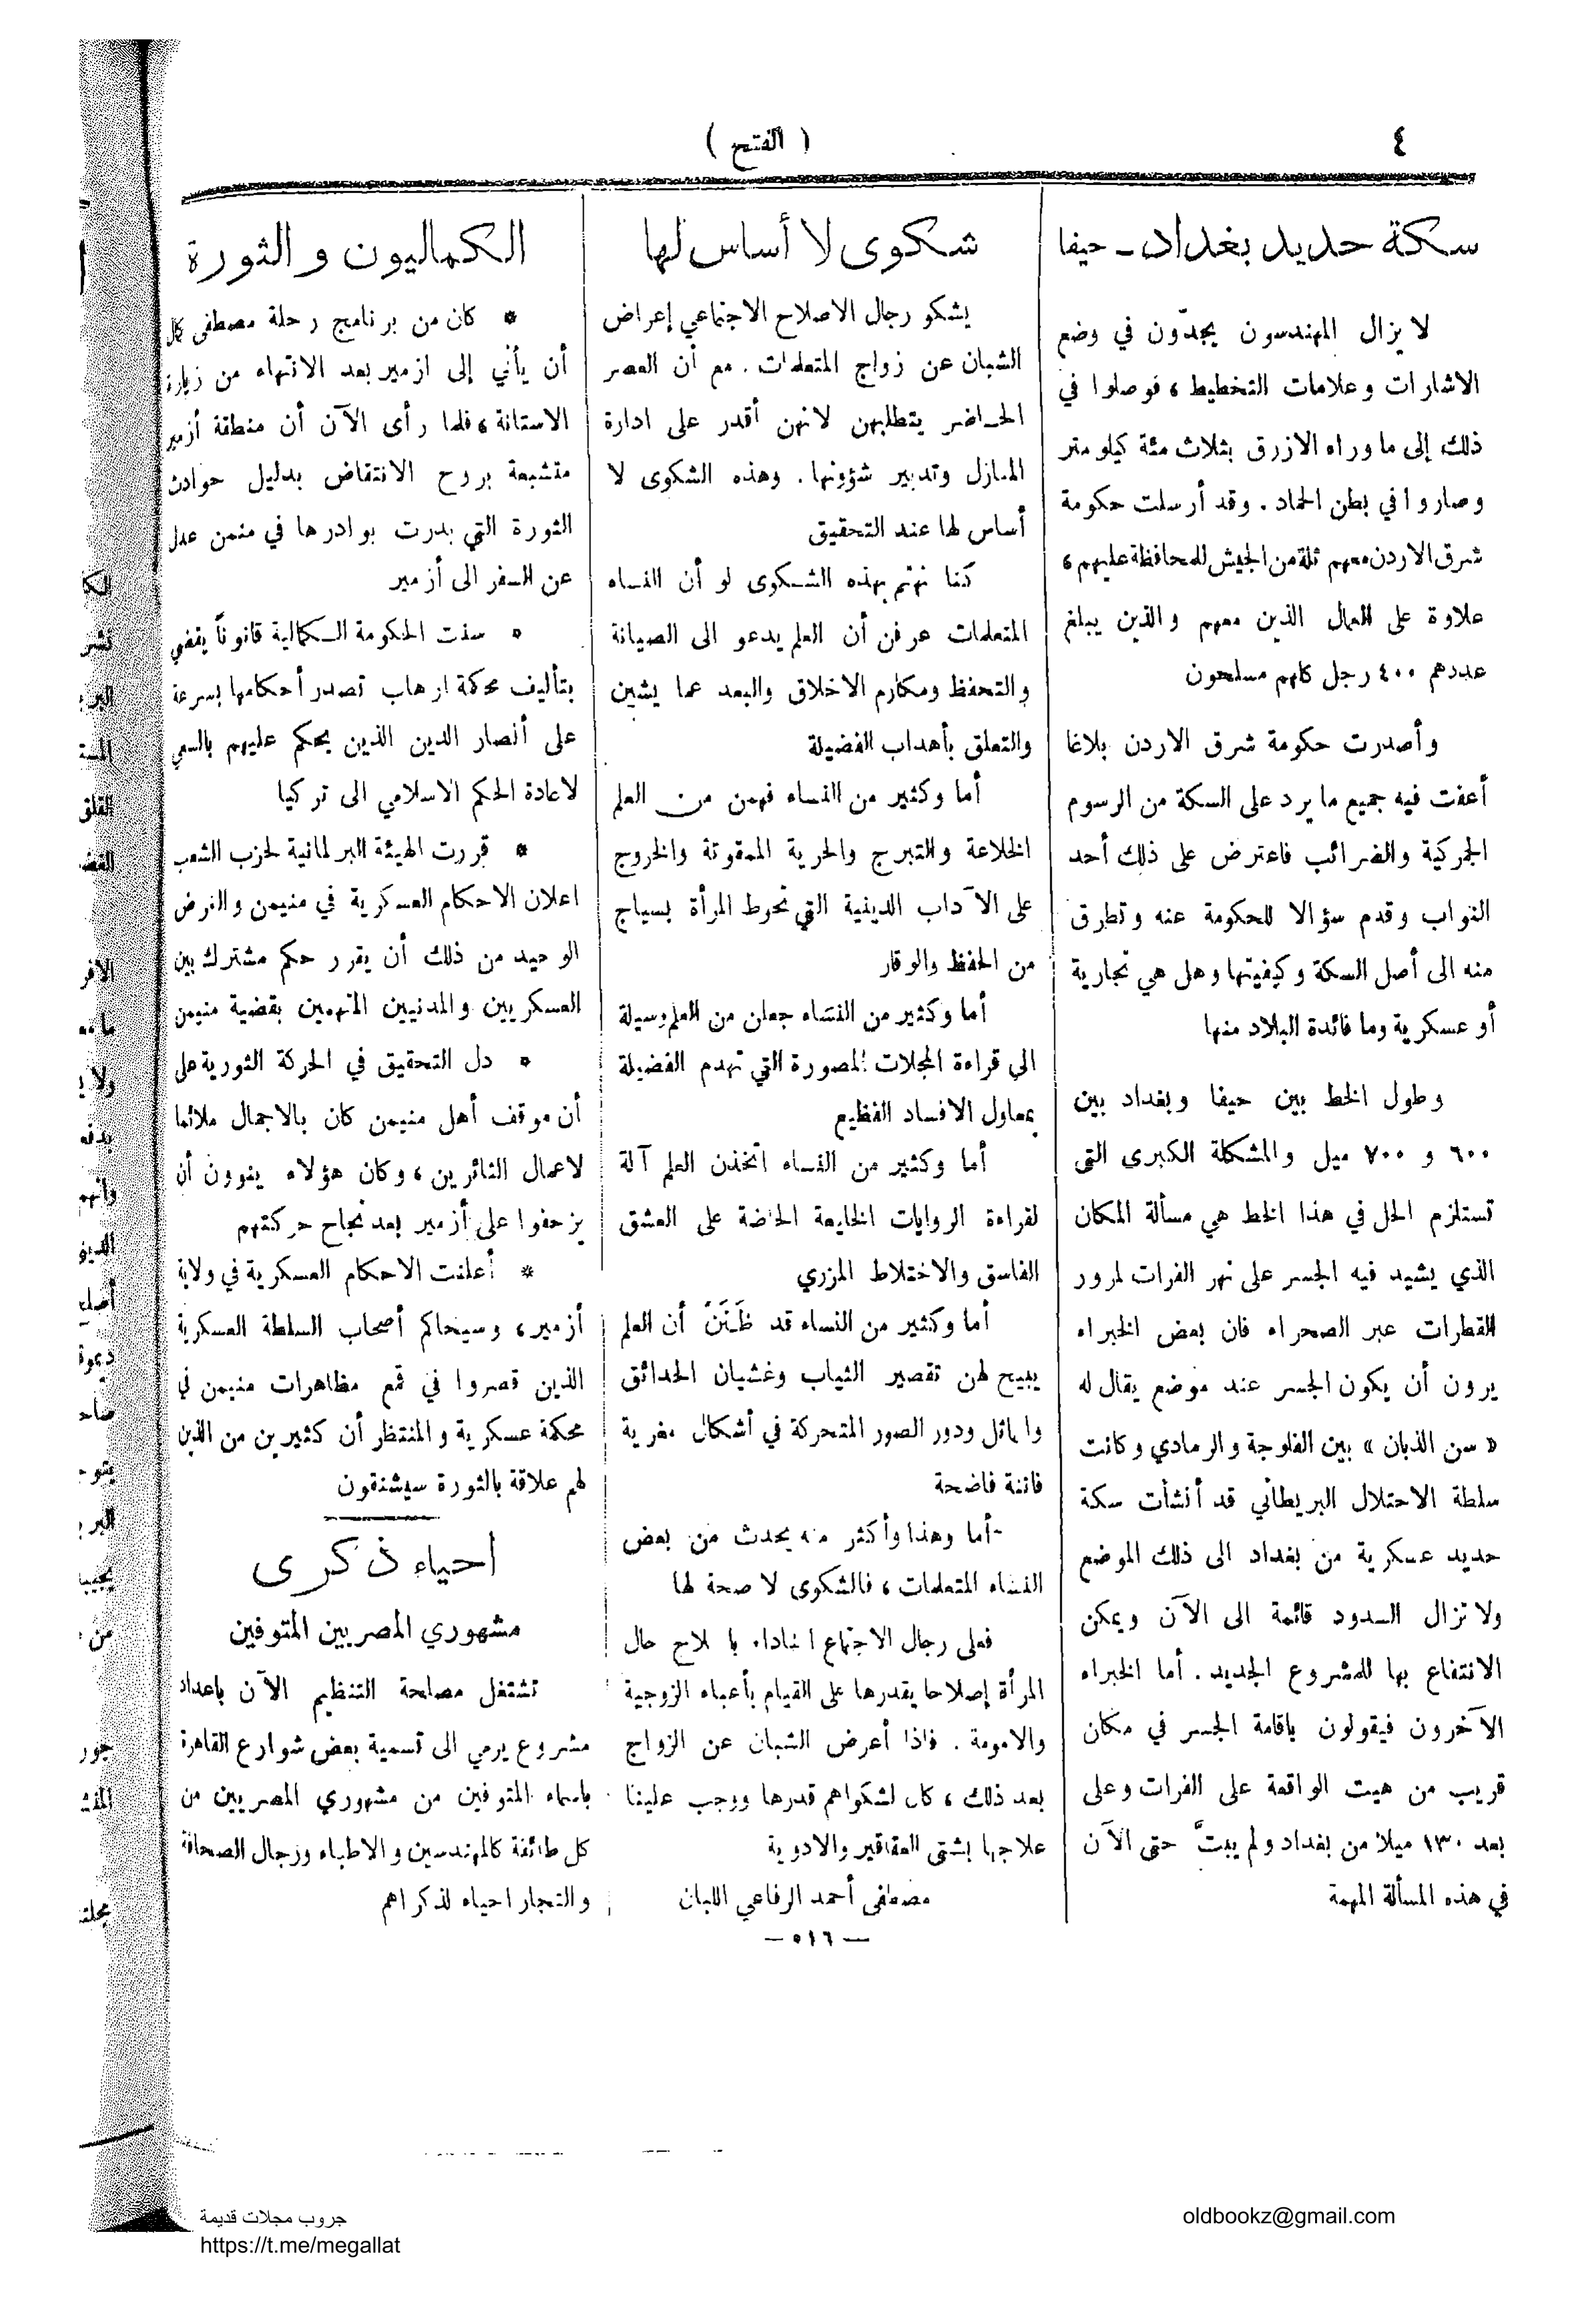 ٤
( الفتح )
سكة حديد بغداد ـ حيفا
لا يزال المهندسون يجدّون في وضع
الاشارات وعلامات التخطيط ، فوصلوا في
ذلك إلى ما وراء الازرق بثلاث مئة كيلو متر
وصاروا في بطن الحماد . وقد أرسلت حكومة
شرق الاردن معهم ثلة من الجيش للمحافظة عليهم ،
علاوة على العمال الذين معهم والذين يبلغ
عددهم ٤٠٠ رجل كلهم مسلحون
وأصدرت حكومة شرق الاردن بلاغا
أعفت فيه جميع ما يرد على السكة من الرسوم
الجمركية والضرائب فاعترض على ذلك أحد
النواب وقدم سؤالا للحكومة عنه وتطرق
منه الى أصل السكة وكيفيتها وهل هي تجارية
أو عسكرية وما فائدة البلاد منها
وطول الخط بين حيفا وبغداد بين
٦٠٠ و ٧٠٠ ميل والمشكلة الكبرى التي
تستلزم الحل في هذا الخط هي مسألة المكان
الذي يشيد فيه الجسر على نهر الفرات لمرور
القطرات عبر الصحراء فان بعض الخبراء
يرون أن يكون الجسر عند موضع يقال له
« سن الذبان » بين الفلوجة والرمادي وكانت
سلطة الاحتلال البريطاني قد أنشأت سكة
حديد عسكرية من بغداد الى ذلك الموضع
ولا تزال السدود قائمة الى الآن ويمكن
الانتفاع بها للمشروع الجديد . أما الخبراء
الآخرون فيقولون باقامة الجسر في مكان
قريب من هيت الواقعة على الفرات وعلى
بعد ١٣٠ ميلا من بغداد ولم يبتّ حتى الآن
في هذه المسألة المهمة
شكوى لا أساس لها
يشكو رجال الاصلاح الاجتماعي إعراض
الشبان عن زواج المتعلمات . مع أن العصر
الحـاضر يتطلبهن لانهن أقدر على ادارة
المنازل وتدبير شؤونها . وهذه الشكوى لا
أساس لها عند التحقيق
كنا نهتم بهذه الشـكوى لو أن النساء
المتعلمات عرفن أن العلم يدعو الى الصيانة
والتحفظ ومكارم الاخلاق والبعد عما يشين
والتعلق بأهداب الفضيلة
أما وكثير من النساء فهمن من العلم
الخلاعة والتبرج والحرية الممقوتة والخروج
على الآداب الدينية التي تحوط المرأة بسياج
من الحفظ والوقار
أما وكثير من النساء جعلن من العلم وسيلة
الى قراءة المجلات المصورة التي تهدم الفضيلة
بمعاول الافساد الفظيع
أما وكثير من النساء اتخذن العلم آلة
لقراءة الروايات الخليعة الحاضة على العشق
الفاسق والاختلاط المزري
أما وكثير من النساء قد ظَنَنَّ أن العلم
يبيح لهن تقصير الثياب وغشيان الحدائق
ودور الصور المتحركة في أشكال مغرية
فاتنة فاضحة
أما وهذا وأكثر منه يحدث من بعض
النساء المتعلمات ، فالشكوى لا صحة لها
فعلى رجال الاجتماع حال
المرأة إصلاحا يقدرها على القيام بأعباء الزوجية
والامومة . فاذا أعرض الشبان عن الزواج
بعد ذلك ، كان لشكواهم قدرها ووجب علينا
علاجها بشتى العقاقير والادوية
مصطفى أحمد الرفاعي اللبان
الكماليون والثورة
* كان من برنامج رحلة مصطفى كمال
أن يأتي إلى ازمير بعد الانتهاء من زيارة
الاستانة ، فلما رأى الآن أن منطقة أزمير
متشبعة بروح الانتقاض بدليل حوادث
الثورة التي بدرت بوادرها في منمن عدل
عن السفر الى أزمير
* سنت الحكومة الـكمالية قانوناً يقضي
بتأليف محكمة ارهاب تصدر أحكامها بسرعة
على أنصار الدين الذين يحكم عليهم بالسعي
لاعادة الحكم الاسلامي الى تركيا
* قررت الهيئة البرلمانية لحزب الشعب
اعلان الاحكام العسكرية في منيمن والغرض
الوحيد من ذلك أن يقرر حكم مشترك بين
العسكريين والمدنيين المتهمين بقضية منيمن
* دل التحقيق في الحركة الثورية على
أن موقف أهل منيمن كان بالاجمال ملائما
لاعمال الثائرين ، وكان هؤلاء ينوون أن
يزحفوا على أزمير بعد نجاح حركتهم
* أعلنت الاحكام العسكرية في ولاية
أزمير ، وسيحاكم أصحاب السلطة العسكرية
الذين قصروا في قمع مظاهرات منيمن في
محكمة عسكرية والمنتظر أن كثيرين من الذين
لهم علاقة بالثورة سيشنقون
احياء ذكرى
مشهوري المصريين المتوفين
تشتغل مصلحة التنظيم الآن باعداد
مشروع يرمي الى تسمية بعض شوارع القاهرة
باسماء المتوفين من مشهوري المصريين من
كل طائفة كالمهندسين والاطباء ورجال الصحافة
والتجار احياء لذكراهم
— ٥١٦ —
جروب مجلات قديمة
https://t.me/megallat
oldbookz@gmail.com